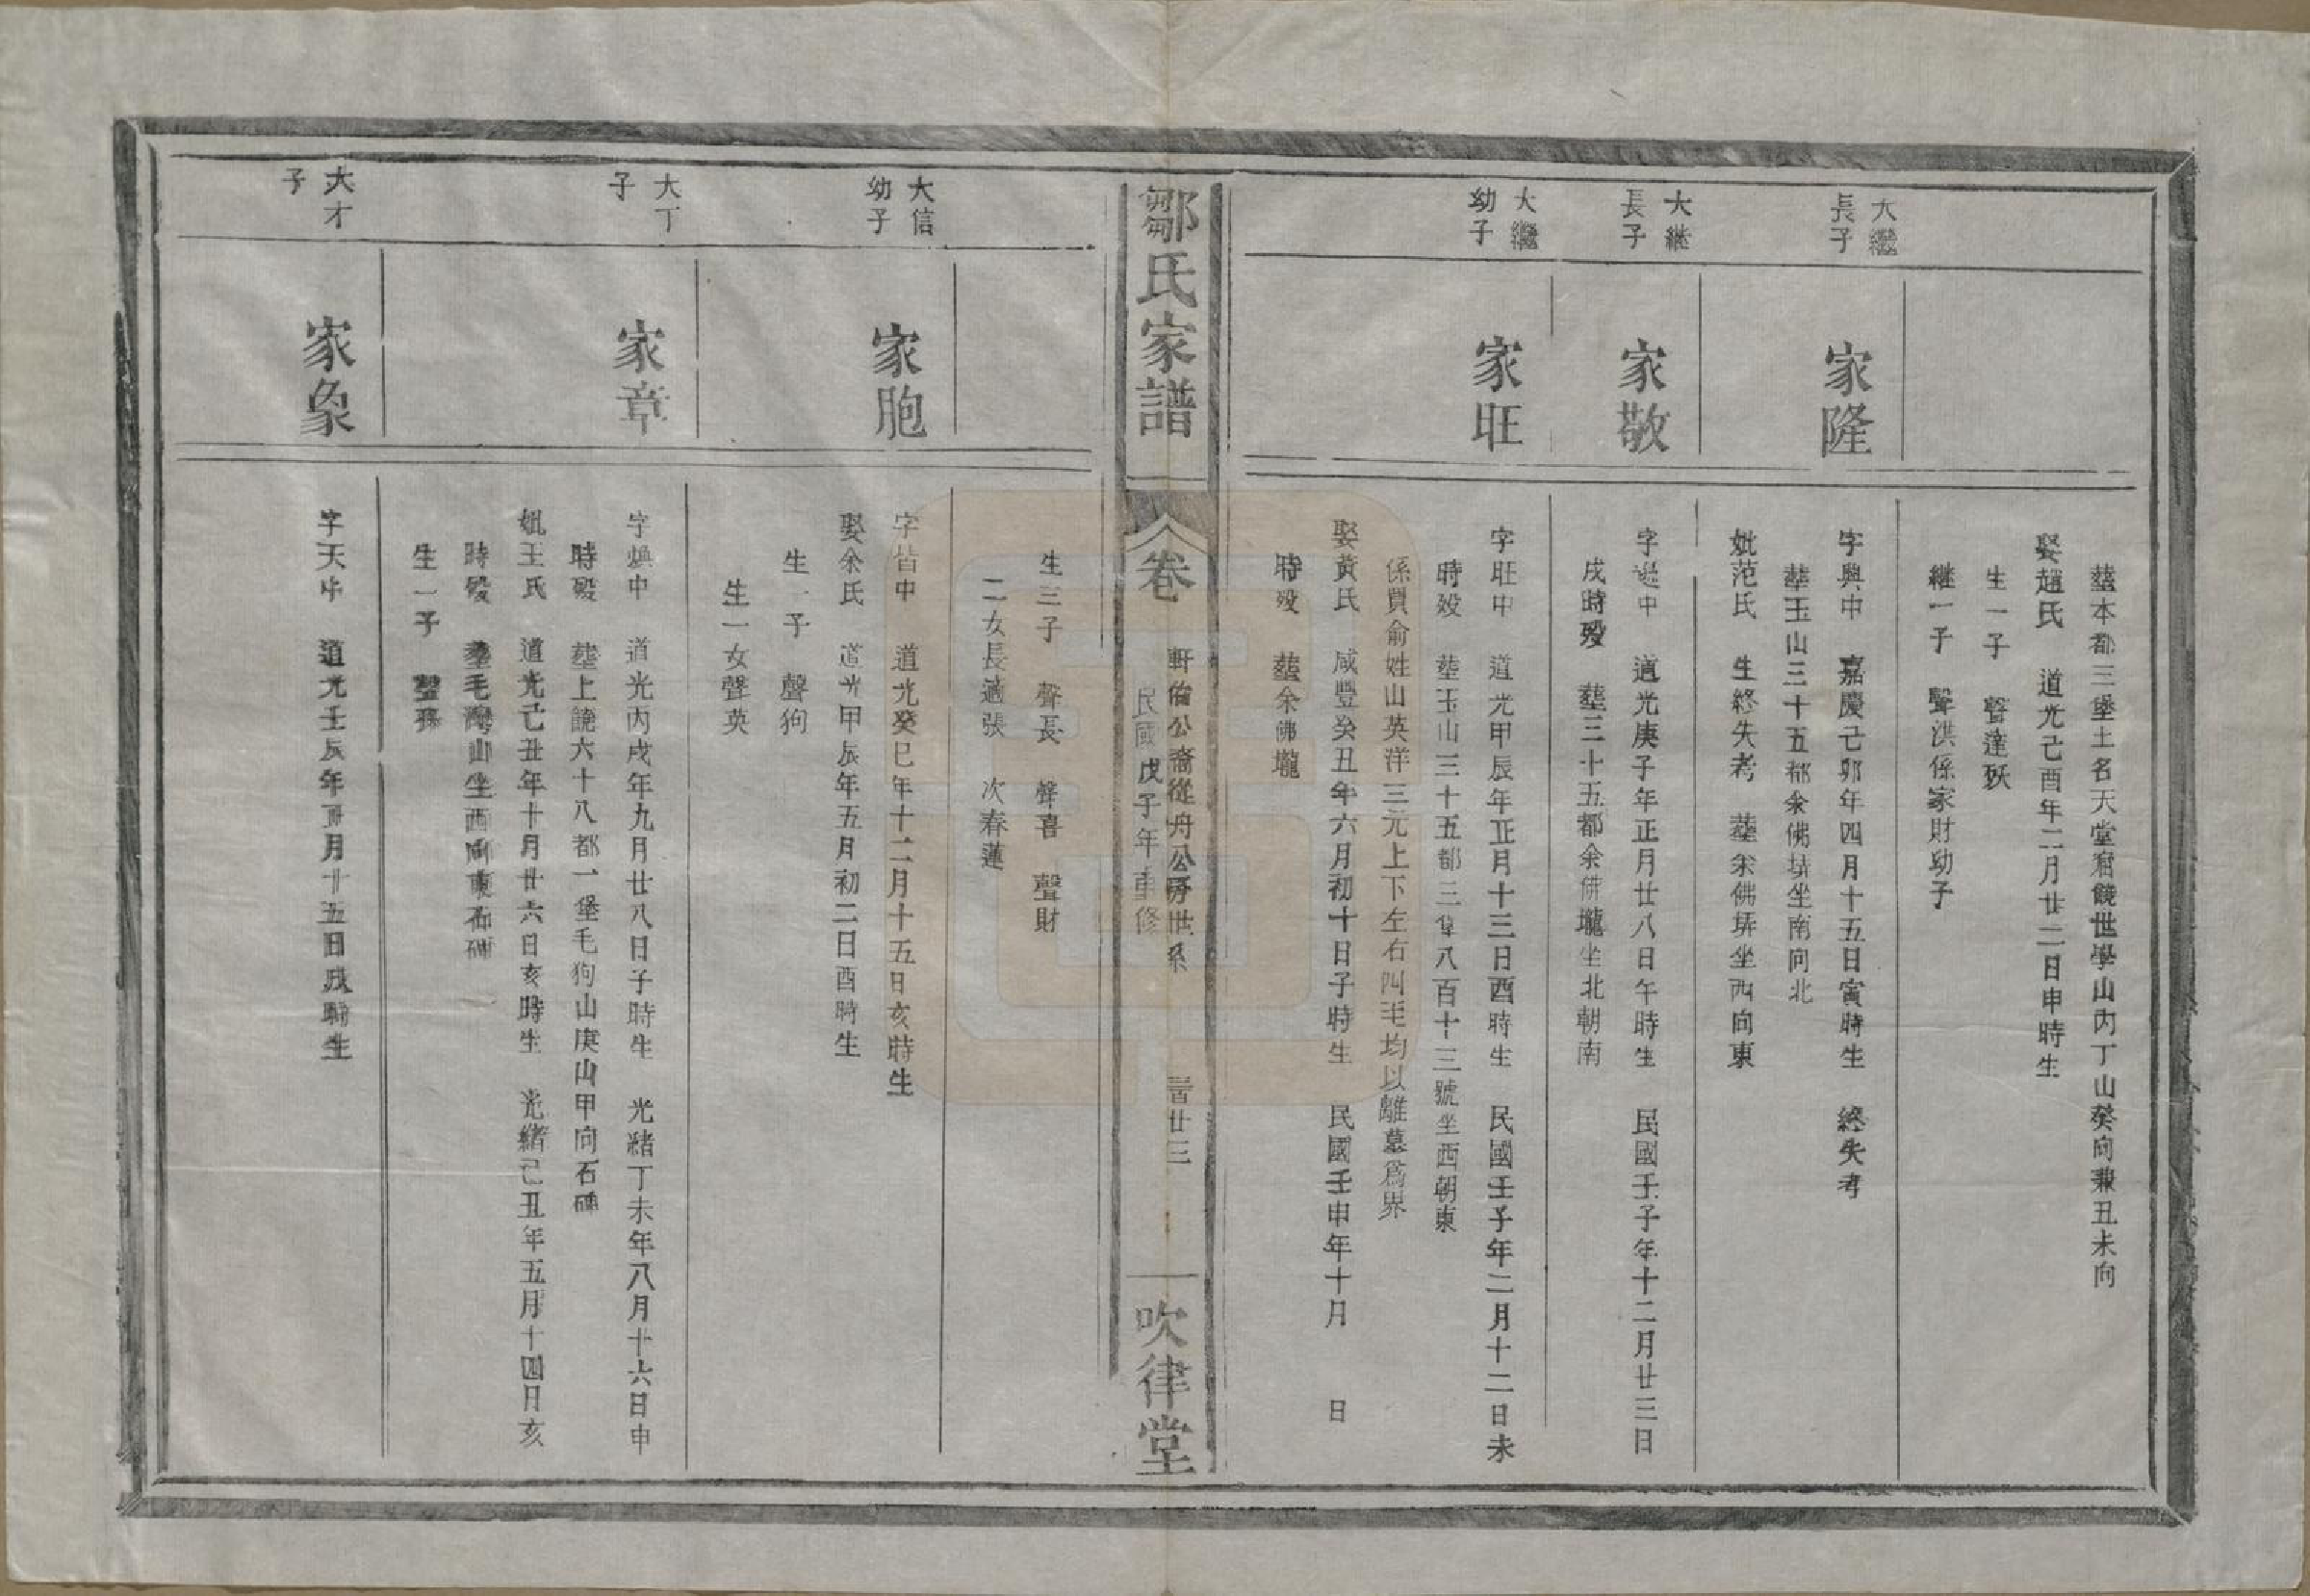 塟本都三堡土名天堂窟饒世學山丙丁山癸向兼丑未向
娶趙氏 道光己酉年二月廿二日申時生
生一子 聲達殀
繼一子 聲洪係家財幼子
大繼
長子
家隆
字興中 嘉慶己卯年四月十五日寅時生 終失考
塟玉山三十五都余佛塝坐南向北
妣范氏 生終失考 塟余佛塝坐西向東
大継
長子
家敬
字遊中 道光庚子年正月廿八日午時生 民國壬子年十二月廿三日
戌時歿 塟三十五都余佛壠坐北朝南
大繼
幼子
家旺
字旺中 道光甲辰年正月十三日酉時生 民國壬子年二月十二日未
時歿 塟玉山三十五都三隼八百十三號坐西朝東
係買俞姓山英洋三元上下左右四至均以離墓爲界
娶黃氏 咸豐癸丑年六月初十日子時生 民國壬申年十月 日
時歿 塟余佛壠
鄒氏家譜
卷
軒倫公裔從舟公房世系
民國戊子年重修
三百廿三
吹律堂
生三子 聲長 聲喜 聲財
二女長適張 次春蓮
大信
幼子
家胞
字皆中 道光癸巳年十二月十五日亥時生
娶余氏 道光甲辰年五月初二日酉時生
生一子 聲狗
生一女聲英
大丁
子
家章
字煥中 道光丙戌年九月廿八日子時生 光緒丁未年八月十六日申
時歿 塟上饒六十八都一堡毛狗山庚山甲向石碑
妣王氏 道光己丑年十月廿六日亥時生 光緒己丑年五月十四日亥
時歿 塟毛灣山坐西向東石碑
生一子 聲務
大才
子
家象
字天中 道光壬辰年正月廿五日戌時生